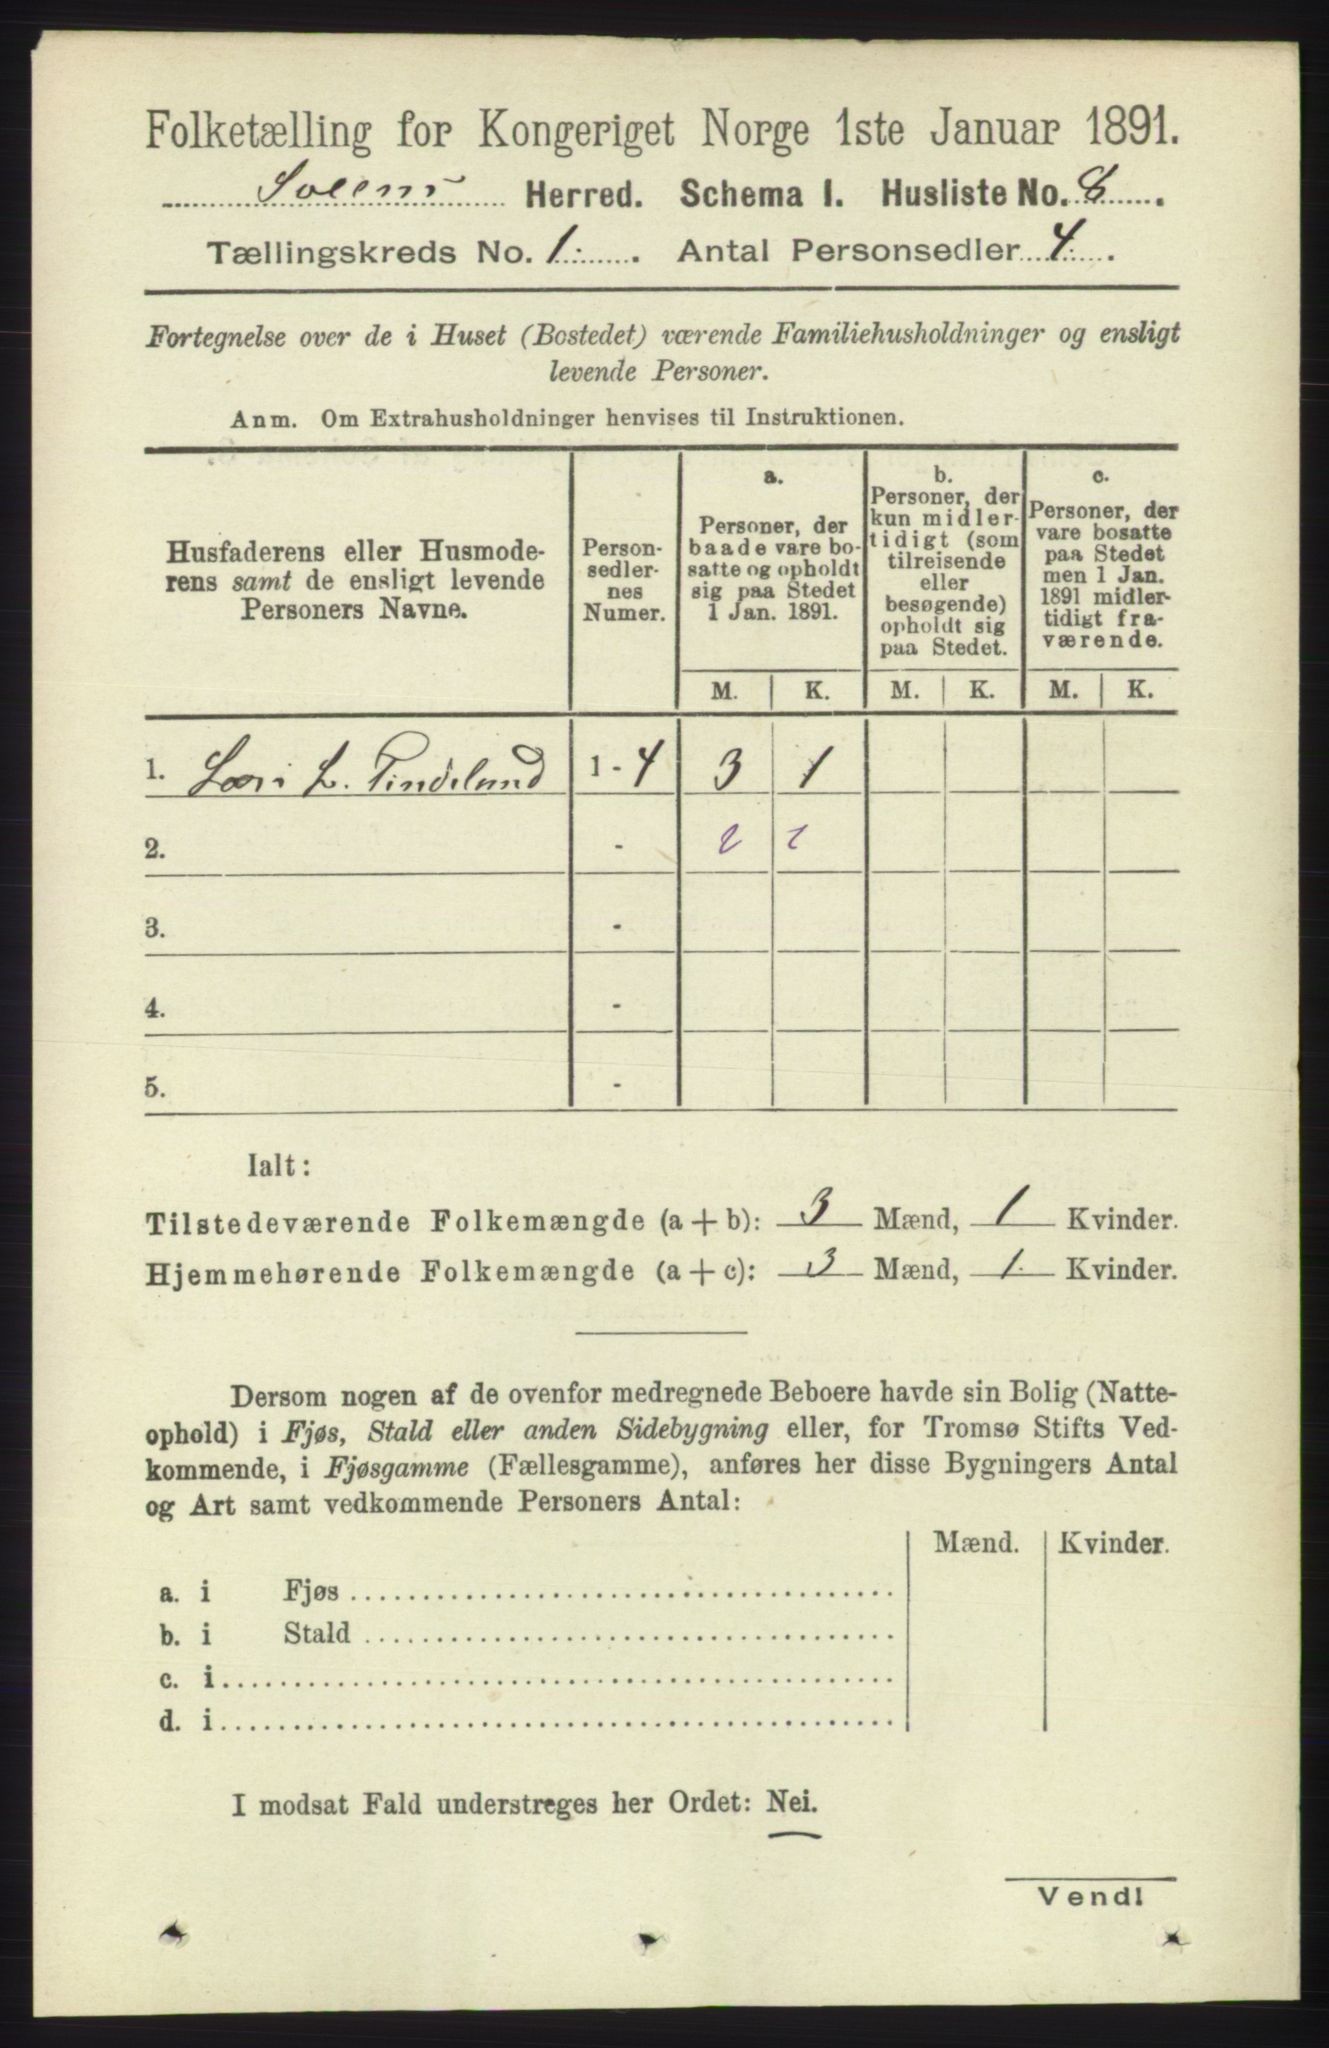 Folketælling for Kongeriget Norge 1ste Januar 1891.
Herred. Schema I. Husliste No. 8.
Tællingskreds No. 1. Antal Personsedler 4.
Fortegnelse over de i Huset (Bostedet) værende Familiehusholdninger og ensligt
levende Personer.
Anm. Om Extrahusholdninger henvises til Instruktionen.
Husfaderens eller Husmode-
rens samt de ensligt levende
Personers Navne.
Person-
sedler-
nes
Numer.
a.
Personer, der
baade vare bo-
satte og opholdt
sig paa Stedet
1 Jan. 1891.
b.
Personer, der
kun midler-
tidigt (som
tilreisende
eller
besøgende)
opholdt sig
paa Stedet.
c.
Personer, der
vare bosatte
paa Stedet
men 1 Jan.
1891 midler-
tidigt fra-
værende.
M. K. M. K. M. K.
1. L. 1 - 4 3 1
2. - 2 2
3. -
4. -
5. -
Ialt:
Tilstedeværende Folkemængde (a + b): 3 Mænd, 1 Kvinder.
Hjemmehørende Folkemængde (a + c): 3 Mænd, 1 Kvinder.
Dersom nogen af de ovenfor medregnede Beboere havde sin Bolig (Natte-
ophold) i Fjøs, Stald eller anden Sidebygning eller, for Tromsø Stifts Ved-
kommende, i Fjøsgamme (Fællesgamme), anføres her disse Bygningers Antal
og Art samt vedkommende Personers Antal:
Mænd. Kvinder.
a. i Fjøs
b. i Stald
c. i
d. i
I modsat Fald understreges her Ordet: Nei.
Vend!